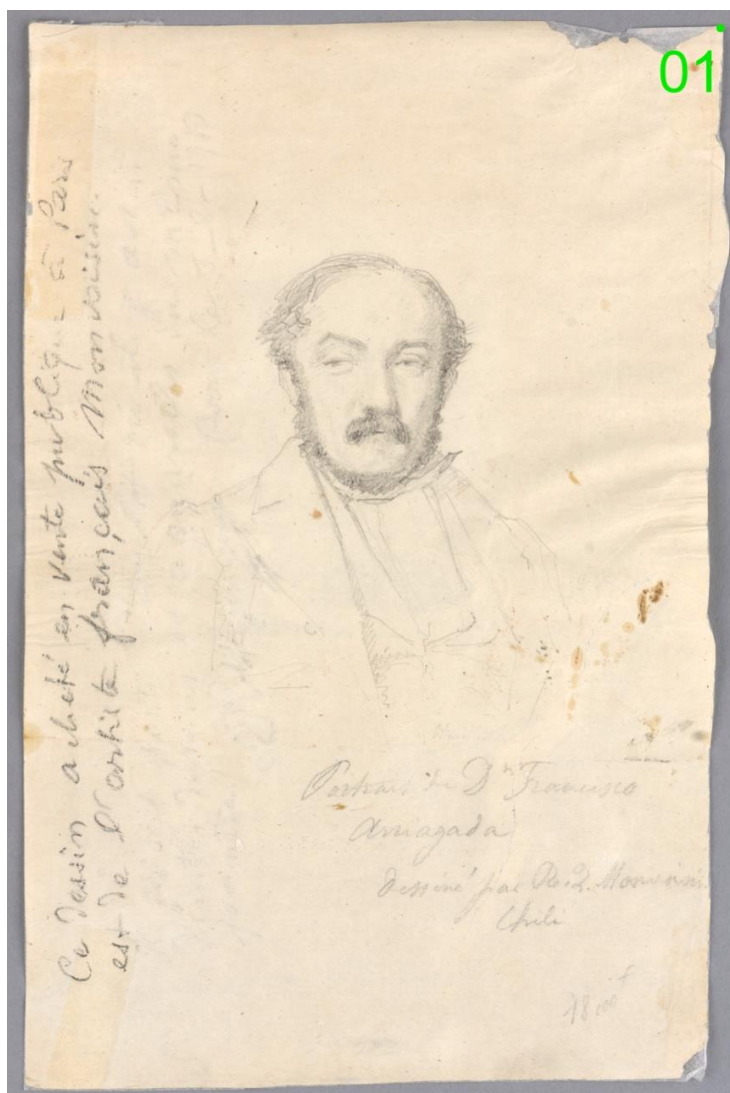 01
Ce dessin acheté en vente publique à Paris
est de l'artiste français Monvoisin.
Portrait de Dn Francisco
Arriagada
dessiné par
Chili